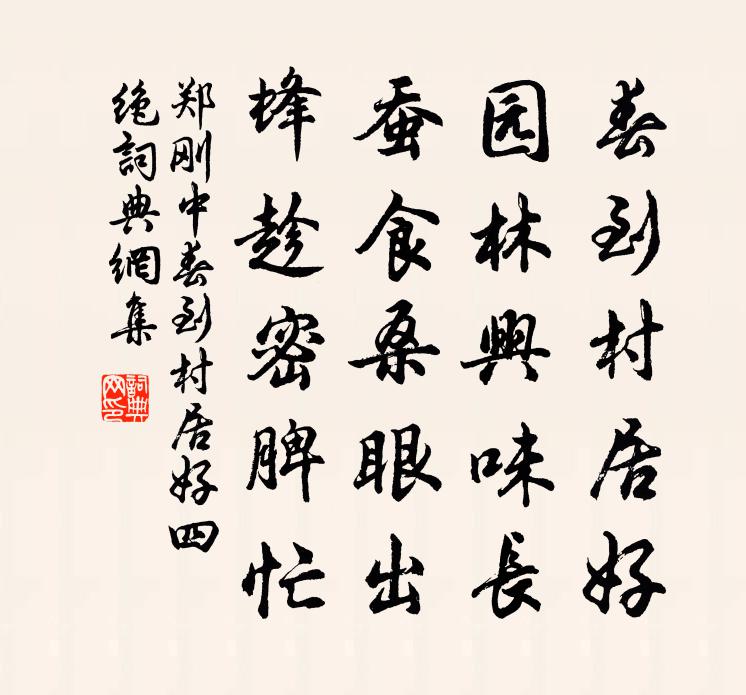 春到村居好
园林興味長
蚕食桑眼出
蜂趁密脾忙
郑刚中春到村居好四
绝詞典網集
詞典网印